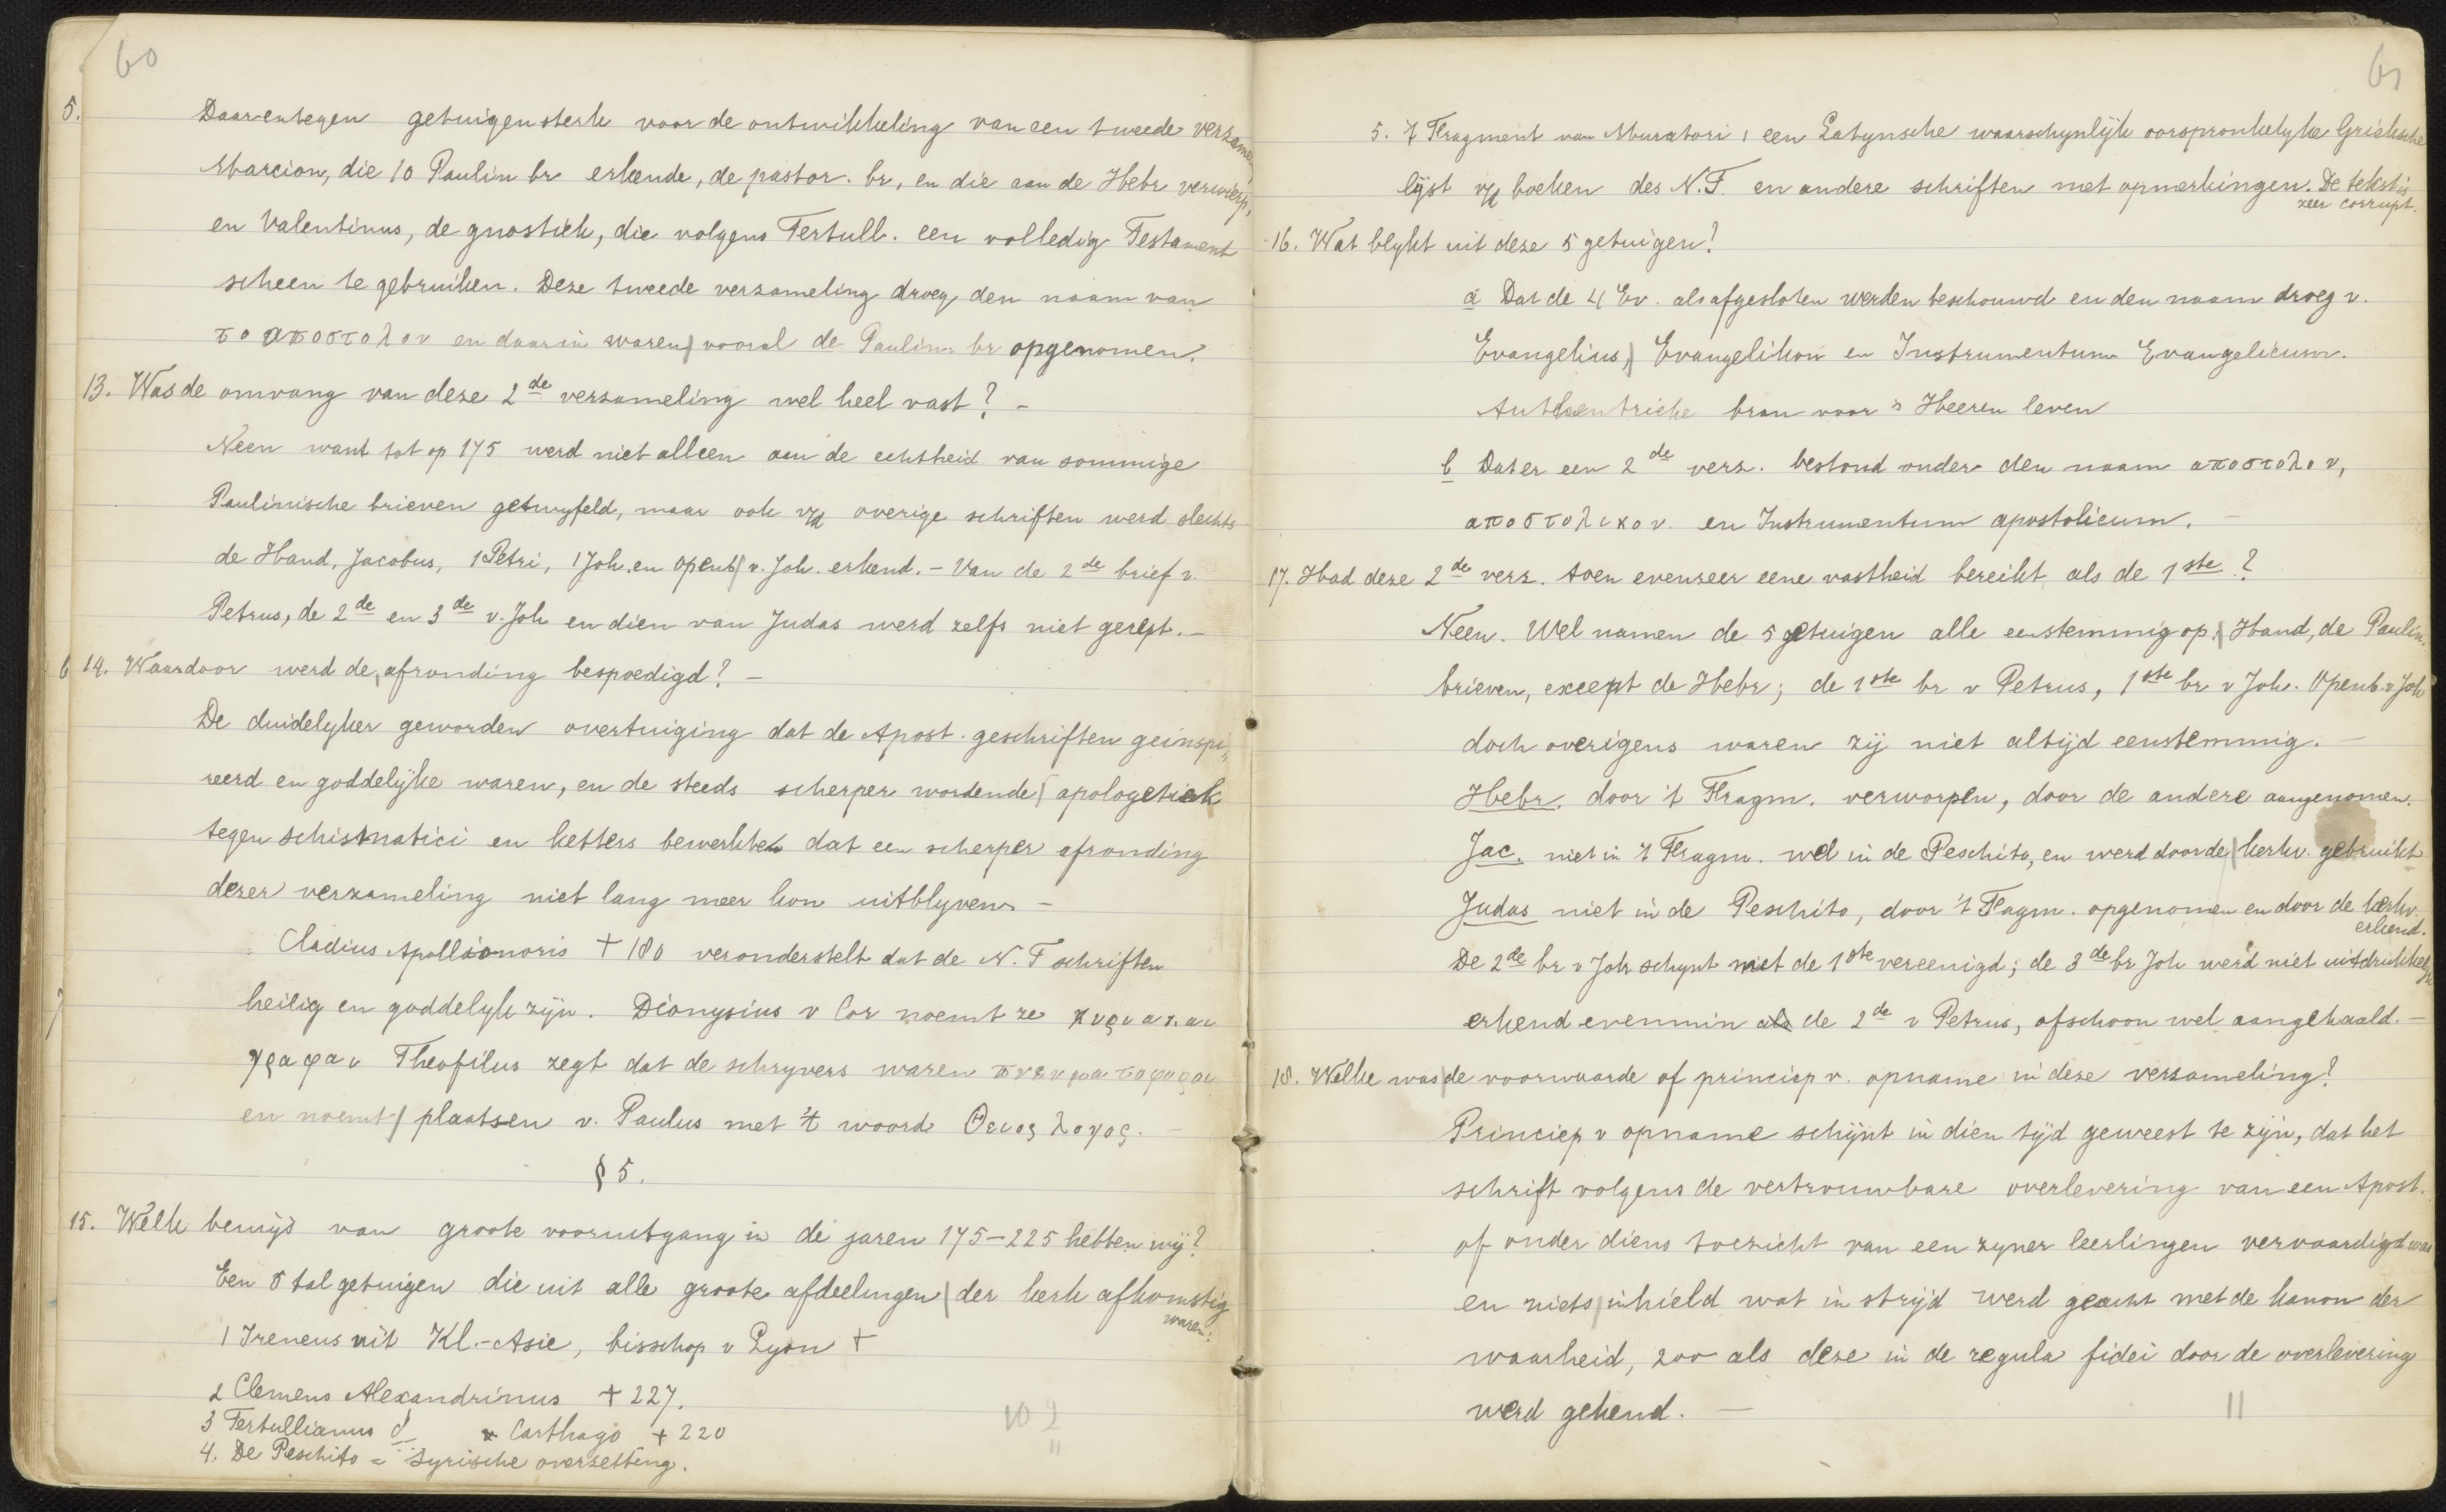 60
5. Daarentegen getuigen sterk voor de ontwikkeling van een tweede verzamel
Marcion, die 10 Paulin br erkende, de pastor. br, en die aan de Hebr verwierp,
en Valentinus, de gnostiek, die volgens Tertull. een volledig Testament
scheen te gebruiken. Deze tweede verzameling droeg den naam van
το αποστολον en daarin waren vooral de Paulin. br opgenomen.
13. Was de omvang van deze 2de verzameling wel heel vast? -
Neen want tot op 175 werd niet alleen aan de echtheid van sommige
Paulinische brieven getwyfeld, maar ook v/d overige schriften werd slechts
de Hand, Jacobus, 1 Petri, 1 Joh. en openb v. Joh. erkend. - Van de 2de brief v.
Petrus, de 2de en 3de v. Joh en dien van Judas werd zelfs niet gerept. -
6 14. Waardoor werd de afronding bespoedigd? -
De duidelyker geworden overtuiging dat de Apost. geschriften geinspi,,
reerd en goddelyke waren, en de steeds scherper wordende apologetiek
tegen schismatici en ketters bewerkten dat een scherper afronding
dezer verzameling niet lang meer kon uitblyven -
Cladius Apollionoris + 180 veronderstelt dat de N. T schriften
7 heilig en goddelyk zijn. Dionysius v Cor noemt ze κυριακαι
γραφαι Theofilus zegt dat de schryvers waren πνευματοφοροι
en noemt plaatsen v. Paulus met 't woord Θειος λογος. -
§ 5.
15. Welk bewijs van groote vooruitgang in de jaren 175-225 hebben wij?
Een 5 tal getuigen die uit alle groote afdeelingen der kerk afkomstig
waren:
1 Ireneus uit Kl.-Asie, bisschop v Lyon +
2 Clemens Alexandrinus + 227.
3 Tertullianus Carthago + 220
4. De Peschito = Syrische overzetting.
10 2
61
5. 't Fragment van Muratori, een Latynsche waarschynlijk oorspronkelyke Grieksche
lijst v/d boeken des N.T. en andere schriften met opmerkingen. De tekst is
zeer corrupt.
16. Wat blykt uit deze 5 getuigen?
a Dat de 4 Ev. als afgesloten werden beschouwd en den naam droeg v.
Evangelius, Evangelikon en Instrumentum Evangelicum.
Authentrieke bron voor 's Heeren leven
b Dat er een 2de verz. bestond onder den naam αποστολον,
αποστολικον. en Instrumentum apostolicum. -
17. Had deze 2de verz. toen evenzeer eene vastheid bereikt als de 1ste?
Neen. Wel namen de 5 getuigen alle eenstemmig op, Hand, de Paulin.
brieven, except de Hebr; de 1ste br v Petrus, 1ste br v Joh. Openb. v Joh
doch overigens waren zij niet altijd eenstemmig. -
Hebr. door 't Fragm. verworpen, door de andere aangenomen.
Jac. niet in 't Fragm. wel in de Peschito, en werd door de kerkv. gebruikt
Judas niet in de Peschito, door 't Fragm. opgenomen en door de kerkv.
erkend.
De 2de br v Joh schynt met de 1ste vereenigd; de 3de br Joh werd niet uitdrukkelyk
erkend evenmin als de 2de v Petrus, ofschoon wel aangehaald. -
18. Welke was de voorwaarde of principe v. opname in deze verzameling?
Principe v opname schijnt in dien tijd geweest te zijn, dat het
schrift volgens de vertrouwbare overlevering van een Apost.
of onder diens toezicht van een zyner leerlingen vervaardigd was
en niets inhield wat in strijd werd geacht met de kanon der
waarheid, zoo als deze in de regula fidei door de overlevering
werd gekend. -
11